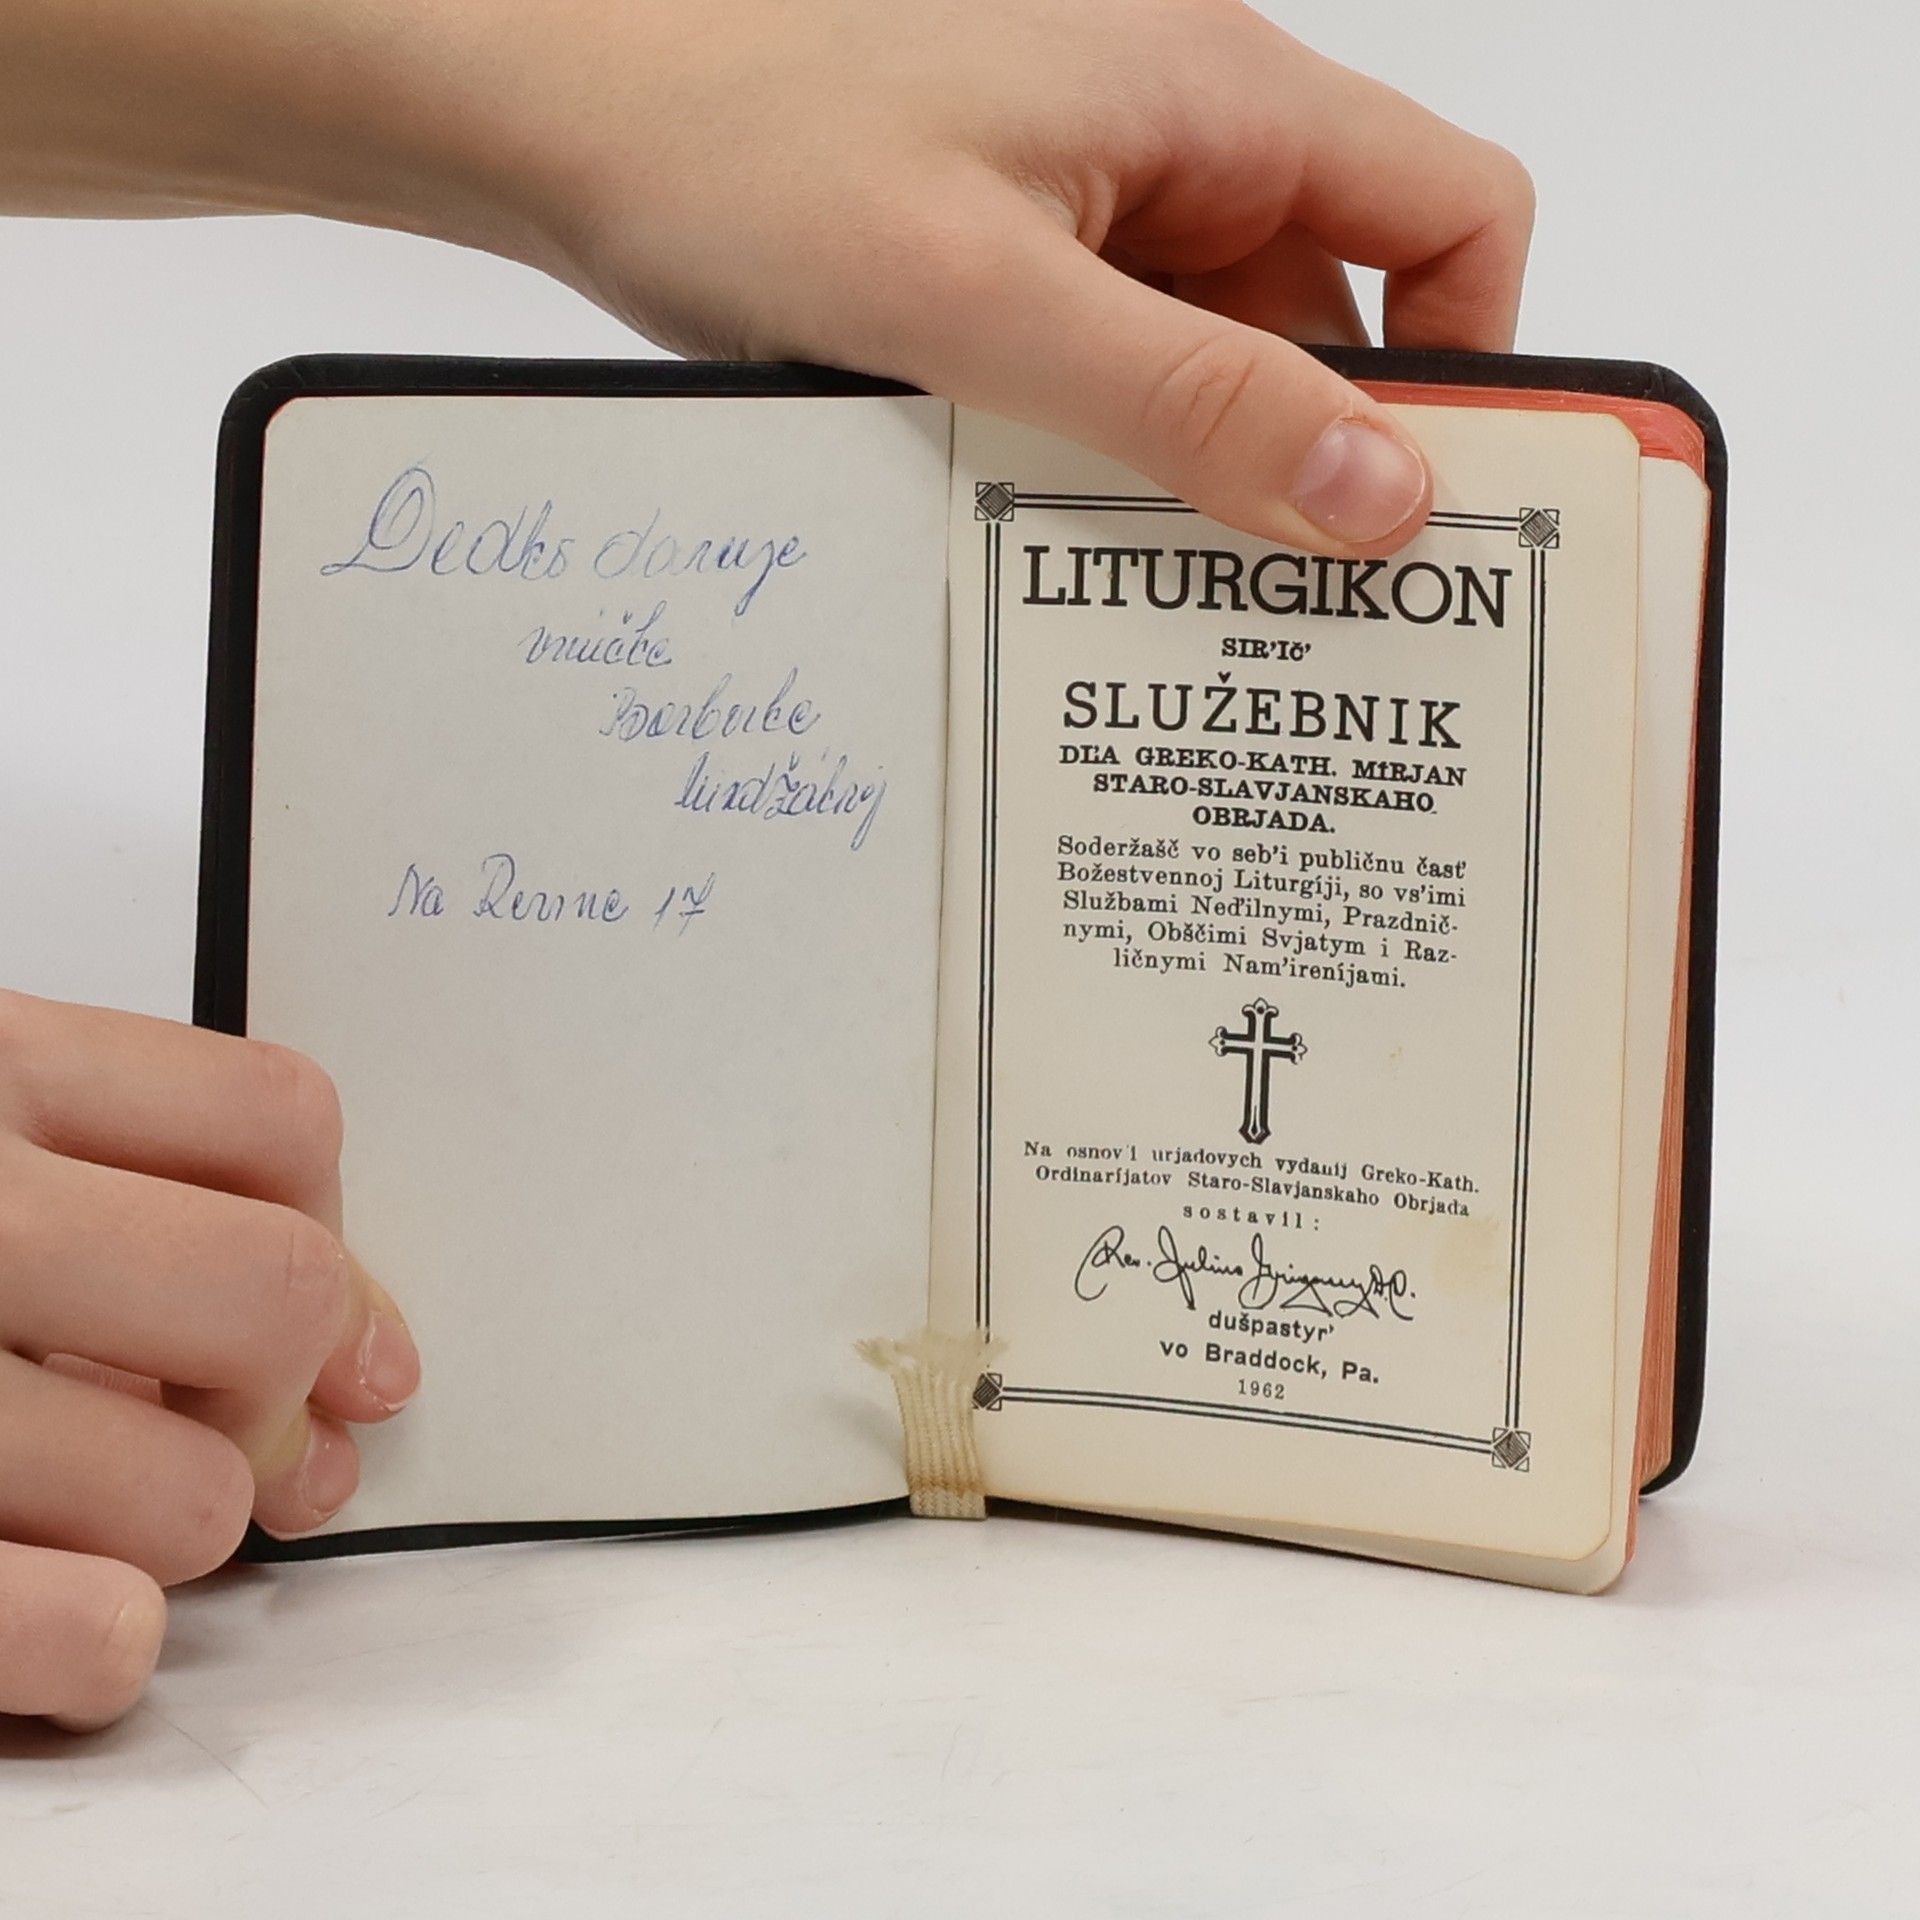 Dedko daruje
vnučke
Borburke
Na Revine 17
LITURGIKON
SIR'IČ'
SLUŽEBNIK
DĽA GREKO-KATH. MÍRJAN
STARO-SLAVJANSKAHO
OBRJADA.
Soderžašč vo seb'i publičnu časť
Božestvennoj Liturgíji, so vs'imi
Službami Neďilnymi, Prazdnič-
nymi, Obščimi Svjatym i Raz-
ličnymi Nam'ireníjami.
Na osnov'i urjadovych vydanij Greko-Kath.
Ordinaríjatov Staro-Slavjanskaho Obrjada
sostavil:
Rev. Julius Grigassy D.D.
dušpastyr'
vo Braddock, Pa.
1962